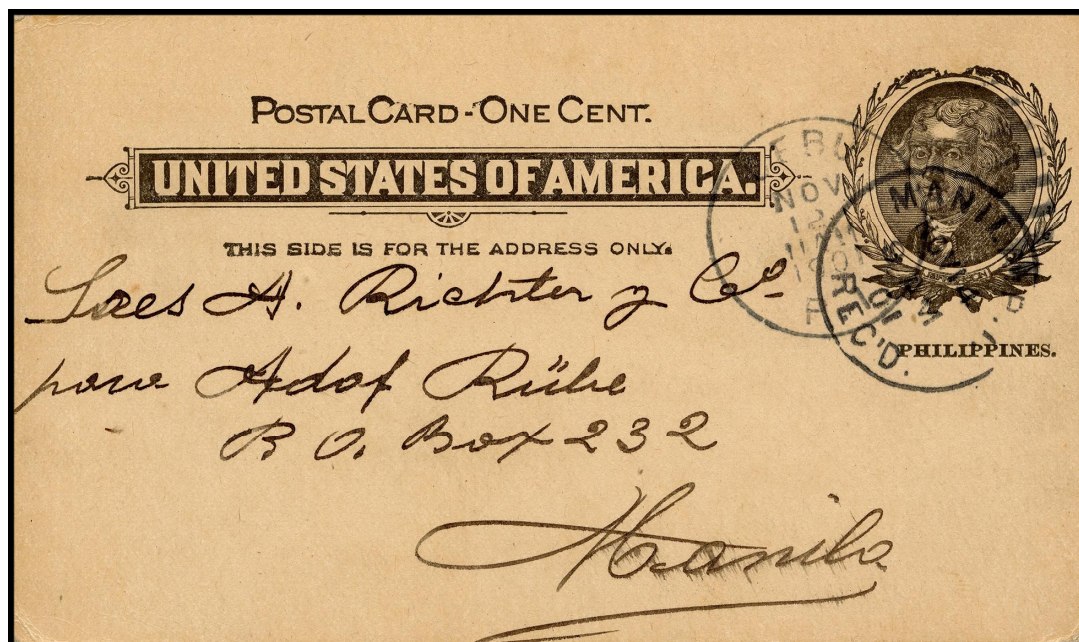 POSTAL CARD - ONE CENT.
UNITED STATES OF AMERICA.
THIS SIDE IS FOR THE ADDRESS ONLY.
NOV
MANILA
REC'D.
PHILIPPINES.
Sres A. Richter y Cº
para Adof Rübe
P. O. Box 232
Manila